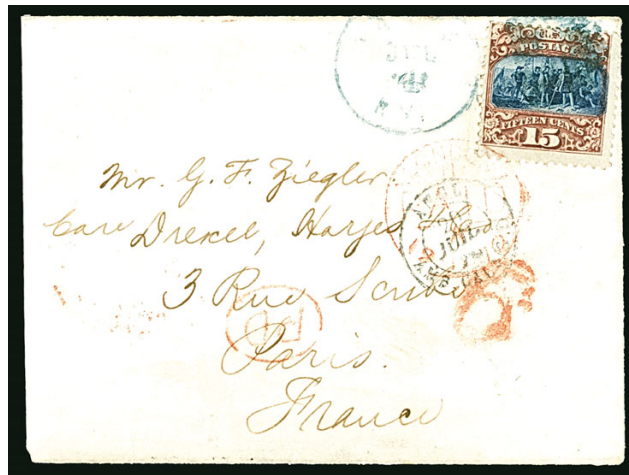 U.S.
POSTAGE
FIFTEEN CENTS
15
JUL
N.Y.
Mr. G. F. Ziegler
Care Drexel, Harjes
3 Rue Scribe
Paris.
France
PD